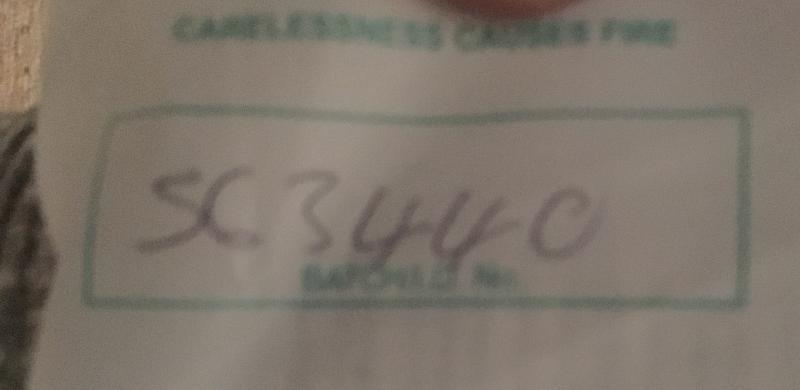 CARELESSNESS CAUSES FIRE
SC3440
BATCH I.D. No.